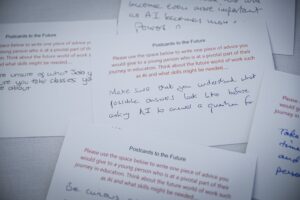 income even more important
as AI becomes more
Power !
Postcards to the Future
Please use the space below to write one piece of advice you
would give to a young person who is at a pivotal part of their
journey in education. Think about the future world of work such
as AI and what skills might be needed....
unsure of what
you
about
Postcards to the Future
Please use the space below to write one piece of advice you
would give to a young person who is at a pivotal part of their
journey in education. Think about the future world of work such
as AI and what skills might be needed....
Make sure that you understand what
possible answers look like before
asking AI to answer a question for
...
Postcards to the Future
Please use the space below to write one piece of advice you
would give to a young person who is at a pivotal part of their
journey in education. Think about the future world of work such
as AI and what skills might be needed....
Be curious
Take
and